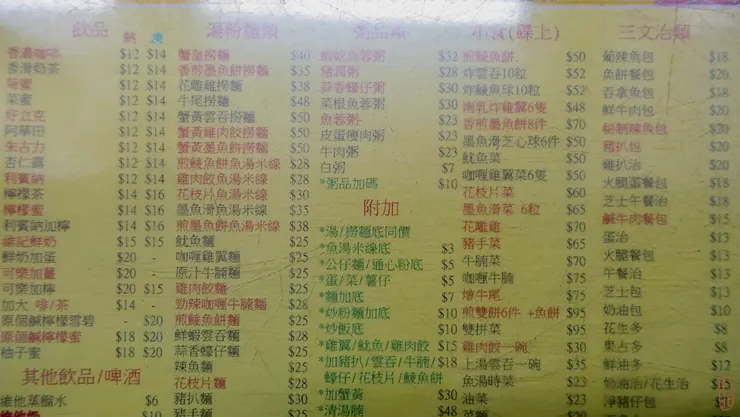 飲品
熱 凍
香濃咖啡 $12 $14
香滑奶茶 $12 $14
菊蜜 $12 $14
菜蜜 $12 $14
好立克 $12 $14
阿華田 $12 $14
朱古力 $12 $14
杏仁露 $12 $14
利賓納 $12 $14
檸檬茶 $14 $16
檸檬蜜 $14 $16
利賓納加檸 $14 $16
維記鮮奶 $15 $15
鮮奶加蛋 $20 -
可樂加薑 $20 -
可樂加檸 $20 $15
加大 啡/茶 $14 -
原個鹹檸檬雪碧 - $20
原個鹹檸檬蜜 $18 $20
柚子蜜 $18 $20
其他飲品/啤酒
維他蒸餾水 $6
湯粉麵類
蟹皇撈麵 $40
香煎墨魚餅撈麵 $35
花雕雞撈麵 $38
牛尾撈麵 $48
蟹黃雲吞撈麵 $50
蟹黃雞肉餃撈麵 $50
蟹黃墨魚餅撈麵 $50
煎鯪魚餅魚湯米線 $28
雞肉餃魚湯米線 $28
花枝片魚湯米線 $30
墨魚滑魚湯米線 $35
煎墨魚餅魚湯米線 $38
魷魚麵 $25
咖喱雞翼麵 $25
原汁牛腩麵 $25
雞肉餃麵 $25
勁辣咖喱牛腩麵 $28
煎鯪魚餅麵 $25
鮮蝦雲吞麵 $28
蒜香蠔仔麵 $25
辣魚麵 $25
花枝片麵 $28
豬扒麵 $30
豬手麵 $25
粥品類
蝦乾魚蓉粥 $32
豬潤粥 $28
蒜香蠔仔粥 $30
菜根魚蓉粥 $30
魚蓉粥 $23
皮蛋瘦肉粥 $23
牛肉粥 $23
白粥 $7
*粥品加碼 $10
附加
*湯/撈麵底同價
*魚湯米線底 $3
*公仔麵/通心粉底 $5
*蛋/菜/薯仔 $5
*麵加底 $7
*炒粉麵加底 $10
*炒飯底 $10
*雞翼/魷魚/雞肉餃 $15
*加豬扒/雲吞/牛腩/ $18
蠔仔/花枝片/鯪魚餅
*加蟹黃 $30
*清湯腩 $48
小食(碟上)
煎鯪魚餅 $50
炸雲吞10粒 $52
炸鯪魚球10粒 $52
南乳炸雞翼6隻 $48
香煎墨魚餅8件 $70
墨魚滑芝心球6件 $50
魷魚菜 $50
咖喱雞翼6隻 $50
花枝片菜 $60
墨魚滑菜 6粒 $65
花雕雞 $70
豬手菜 $65
牛腩菜 $70
咖喱牛腩 $75
燴牛尾 $75
煎雙餅6件 +魚餅 $95
雙拼菜 $95
雞肉餃一碗 $30
上湯雲吞一碗 $35
魚湯時菜 $23
油菜 $23
三文治類
葡辣魚包 $18
魚餅餐包 $20
吞拿魚包 $18
鮮牛肉包 $20
秘制辣魚包 $20
豬扒包 $20
雞扒治 $20
火腿蛋餐包 $18
芝士牛餐包 $18
鹹牛肉餐包 $15
蛋治 $13
火腿餐包 $13
午餐治 $13
芝士包 $13
奶油包 $10
花生多 $8
果占多 $8
鮮油多 $12
奶油治/花生治
淨豬仔包